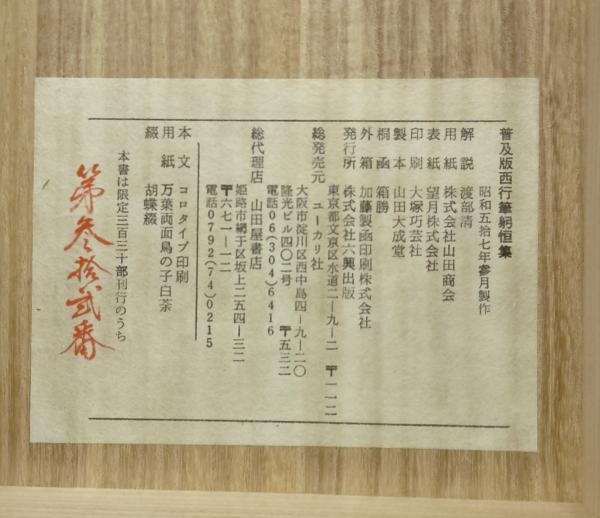 普及版西行筆躬恒集
昭和五拾七年蓼月製作
解説 渡部清
用紙 株式会社山田商会
表紙 望月株式会社
印刷 大塚巧芸社
製本 山田大成堂
桐函 箱勝
外箱 加藤製函印刷株式会社
発行所 株式会社六興出版
東京都文京区水道二ー九ー二 〒一一二
総発売元 ユーカリ社
大阪市淀川区西中島四ー九ー二〇
隆光ビル四〇二号 〒五三二
電話06(304)6416
総代理店 山田屋書店
姫路市網干区坂上二五四ー三二
〒六七一ー一二
電話0792(74)0215
本文 コロタイプ印刷
用紙 万葉両面鳥の子白茶
綴 胡蝶綴
本書は限定三百三十部刊行のうち
第参拾貮番